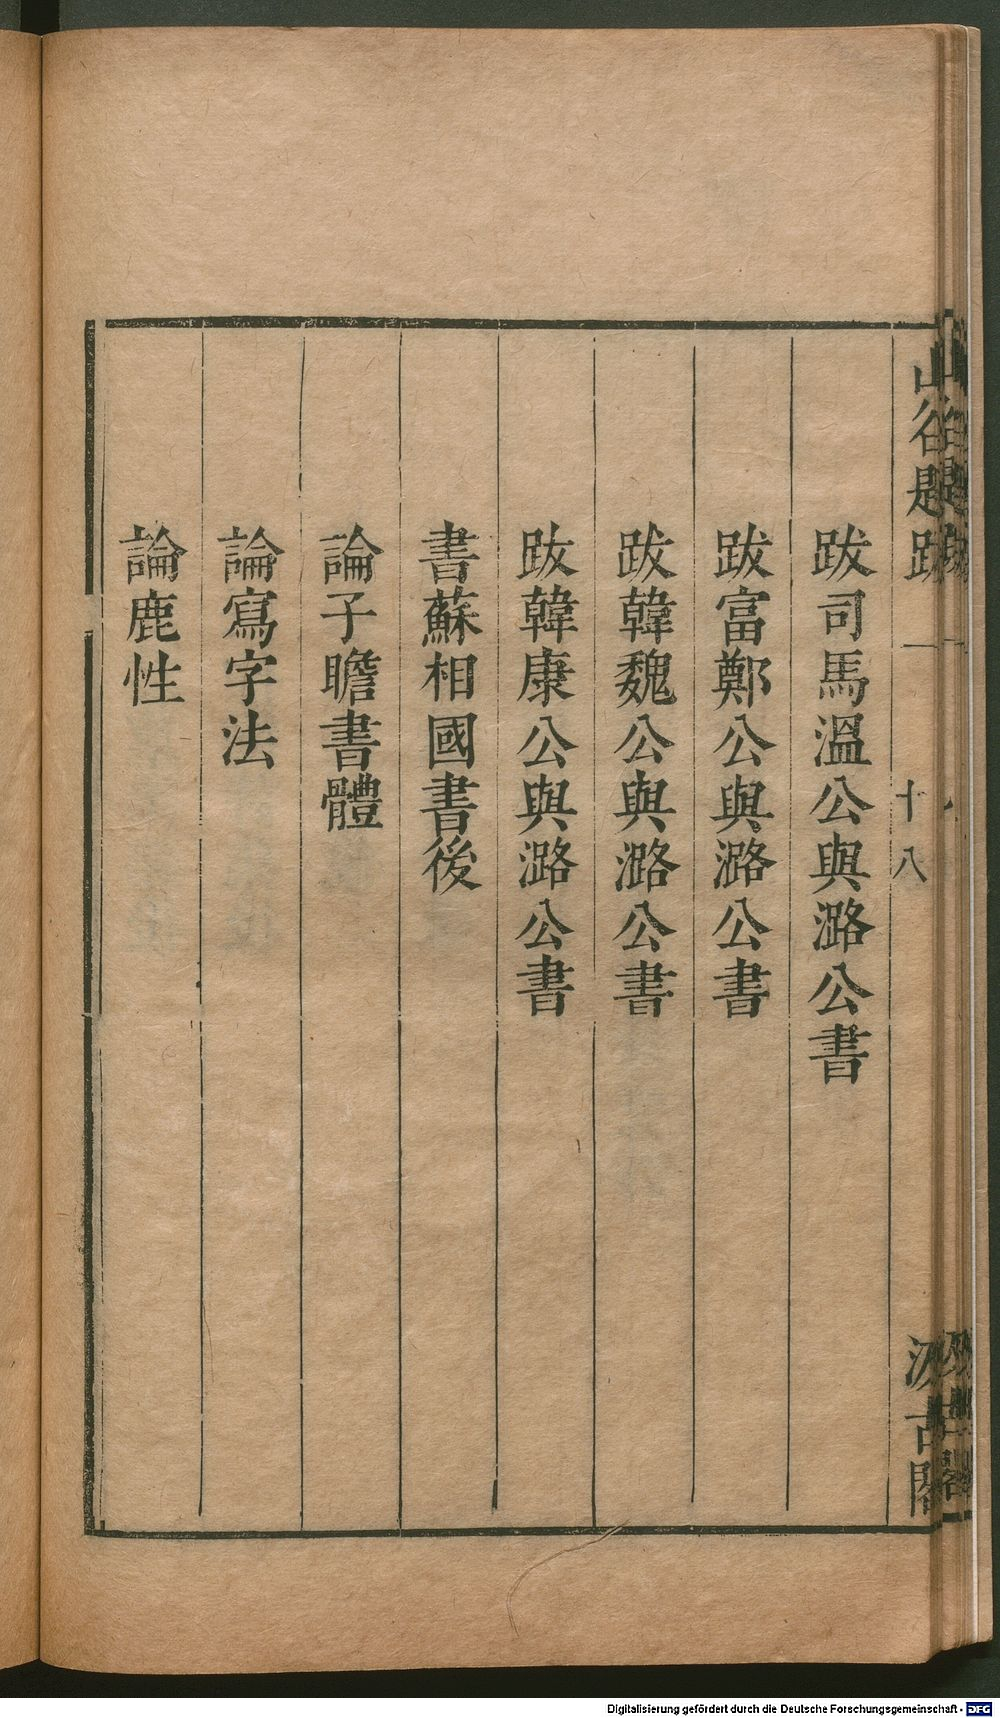 山谷題跋
一
十八
汲古閣
跋司馬溫公與潞公書
跋富鄭公與潞公書
跋韓魏公與潞公書
跋韓康公與潞公書
書蘇相國書後
論子瞻書體
論寫字法
論鹿性
Digitalisierung gefördert durch die Deutsche Forschungsgemeinschaft - DFG